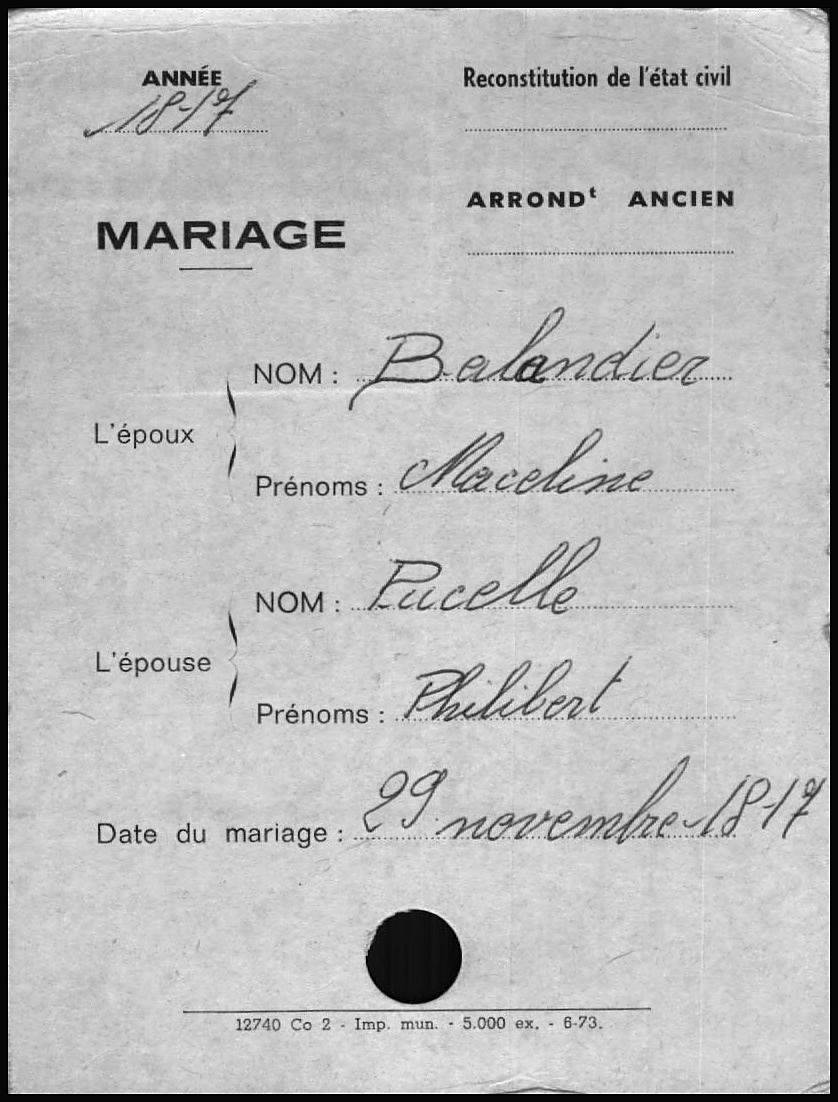 ANNÉE
1817
Reconstitution de l'état civil
ARRONDᵗ ANCIEN
MARIAGE
L'époux
NOM : Balandier
Prénoms : Maceline
L'épouse
NOM : Pucelle
Prénoms : Philibert
Date du mariage : 29 novembre 1817
12740 Co 2 - Imp. mun. - 5.000 ex. - 6-73.